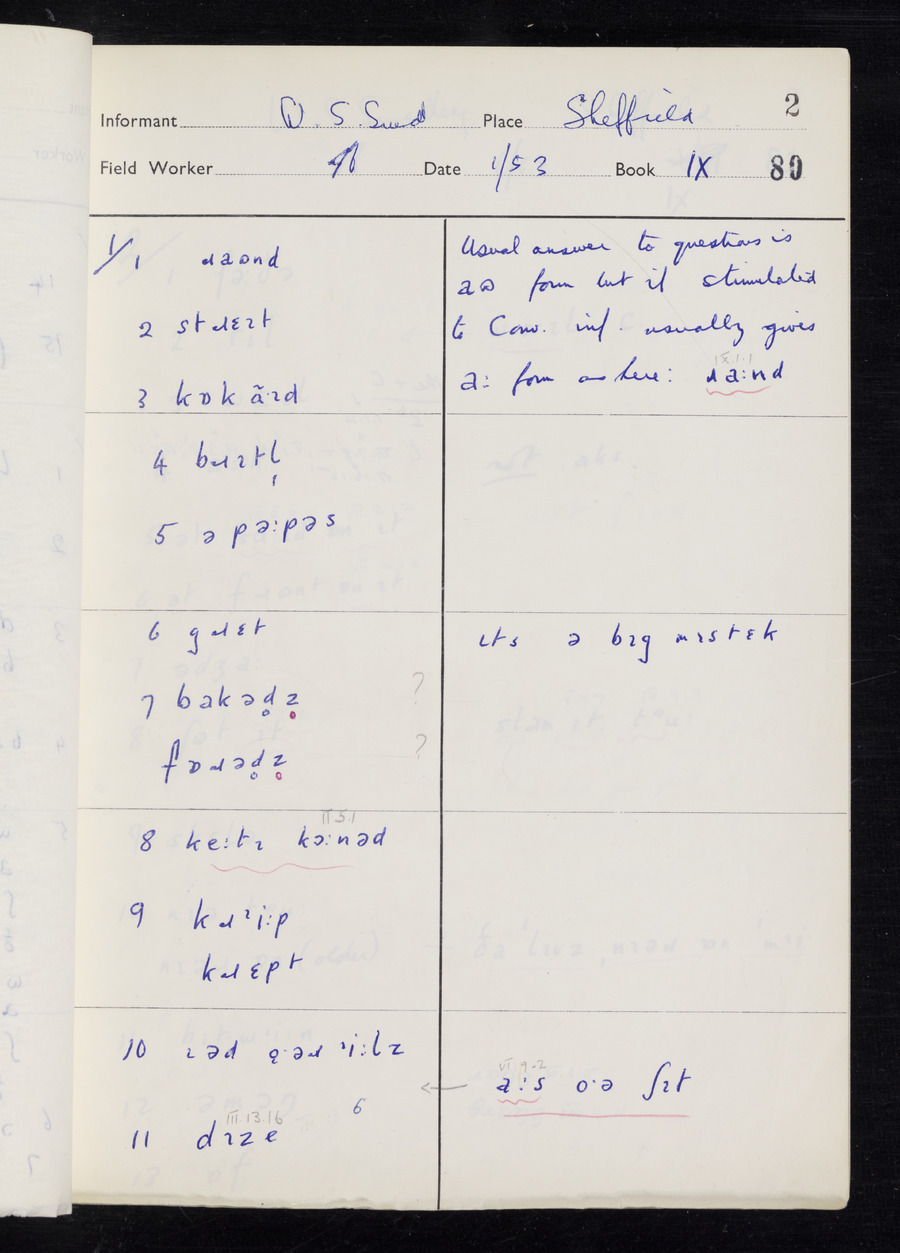 2
Informant Place Sheffield
Field Worker Date 1/53 Book IX 80
1/1 ɹaʊnd
2 stɹɛɪt
3 kɒkãːɪd
4 bɹɪtl̩
5 ə pəːpəs
6 gɹɛt
7 bakəd̥z̥ ?
fɒɹəd̥z̥ ?
II 5.1
8 keːtɪ kɔːnəd
9 kɹɪiːp
kɹɛpt
10 ɪəd ɹɪiːlz
6
III.13.16
11 dɪze
Usual answer to questions is
aʊ form but if stimulated
to Conv. inf. usually gives
aː form as here: ɹaːnd
IX.1.1
ɪts ə bɪg mɪstɛk
VI 9-2
← aːs oˑə ʃɪt